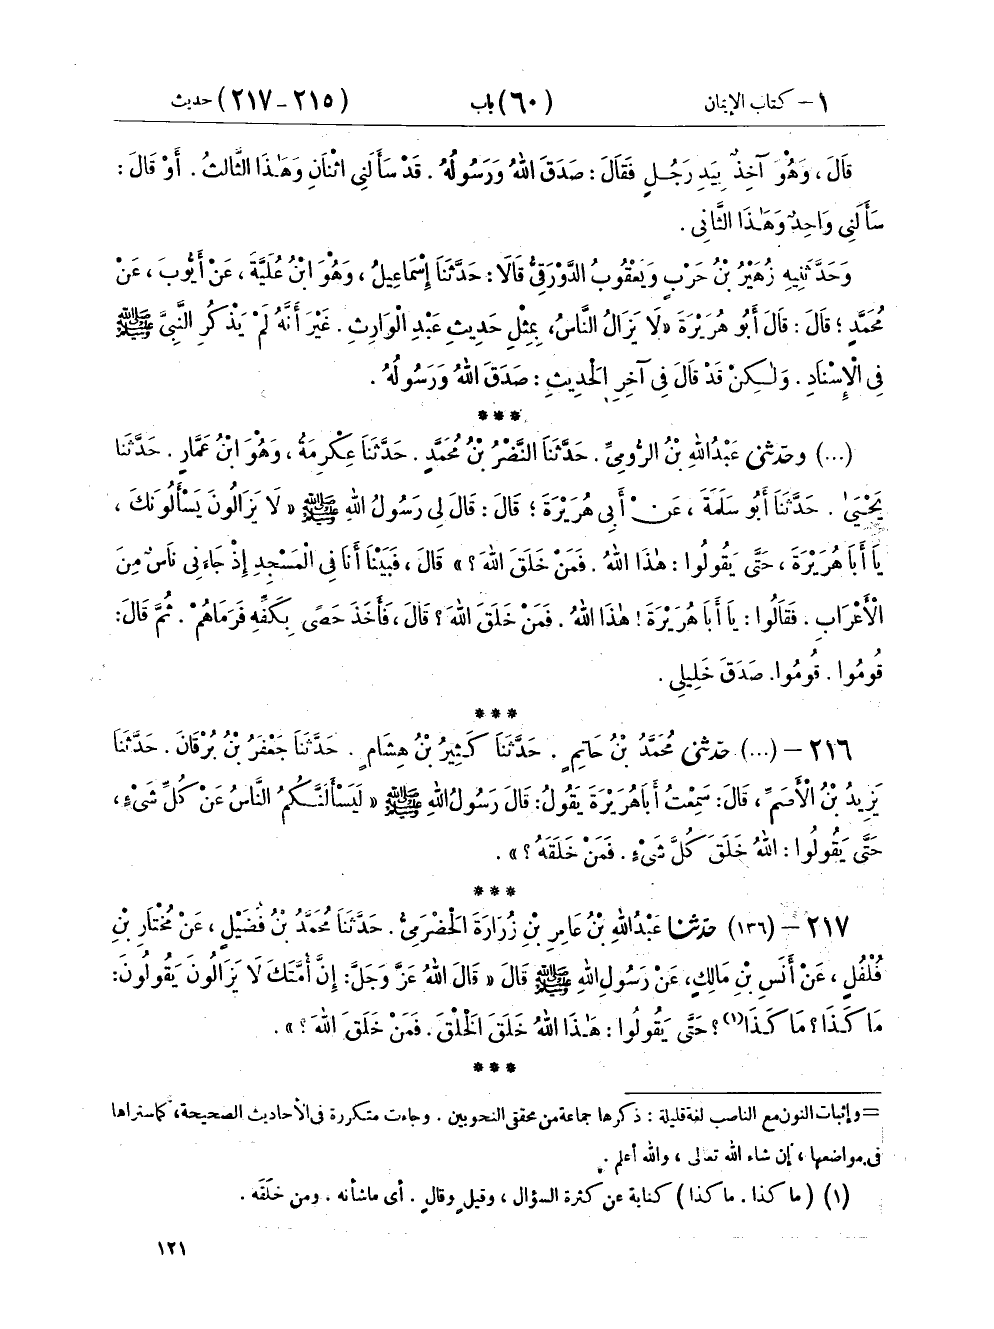 ١ – كتاب الإيمان (٦٠) باب (٢١٥ – ٢١٧) حديث
قَالَ ، وَهُوَ آخِذٌ بِيَدِ رَجُلٍ فَقَالَ : صَدَقَ اللهُ وَرَسُولُهُ . قَدْ سَأَلَنِي اثْنَانِ وَهَٰذَا الثَّالِثُ . أَوْ قَالَ :
سَأَلَنِي وَاحِدٌ وَهَٰذَا الثَّانِي .
وَحَدَّثَنِيهِ زُهَيْرُ بْنُ حَرْبٍ وَيَعْقُوبُ الدَّوْرَقِيُّ قَالَا : حَدَّثَنَا إِسْمَاعِيلُ ، وَهُوَ ابْنُ عُلَيَّةَ ، عَنْ أَيُّوبَ ، عَنْ
مُحَمَّدٍ ؛ قَالَ : قَالَ أَبُو هُرَيْرَةَ «لَا يَزَالُ النَّاسُ» بِمِثْلِ حَدِيثِ عَبْدِ الْوَارِثِ . غَيْرَ أَنَّهُ لَمْ يَذْكُرِ النَّبِيَّ ﷺ
فِي الْإِسْنَادِ . وَلَٰكِنْ قَدْ قَالَ فِي آخِرِ الْحَدِيثِ : صَدَقَ اللهُ وَرَسُولُهُ .
***
(...) وحَدَّثَنِي عَبْدُ اللهِ بْنُ الرُّومِيِّ . حَدَّثَنَا النَّضْرُ بْنُ مُحَمَّدٍ . حَدَّثَنَا عِكْرِمَةُ ، وَهُوَ ابْنُ عَمَّارٍ . حَدَّثَنَا
يَحْيَىٰ . حَدَّثَنَا أَبُو سَلَمَةَ ، عَنْ أَبِي هُرَيْرَةَ ؛ قَالَ : قَالَ لِي رَسُولُ اللهِ ﷺ « لَا يَزَالُونَ يَسْأَلُونَكَ ،
يَا أَبَا هُرَيْرَةَ ، حَتَّى يَقُولُوا : هٰذَا اللهُ . فَمَنْ خَلَقَ اللهَ ؟ » قَالَ ، فَبَيْنَا أَنَا فِي الْمَسْجِدِ إِذْ جَاءَنِي نَاسٌ مِنَ
الْأَعْرَابِ . فَقَالُوا : يَا أَبَا هُرَيْرَةَ ! هٰذَا اللهُ . فَمَنْ خَلَقَ اللهَ ؟ قَالَ ، فَأَخَذَ حَصًى بِكَفِّهِ فَرَمَاهُمْ . ثُمَّ قَالَ :
قُومُوا . قُومُوا . صَدَقَ خَلِيلِي .
***
٢١٦ – (...) حَدَّثَنِي مُحَمَّدُ بْنُ حَاتِمٍ . حَدَّثَنَا كَثِيرُ بْنُ هِشَامٍ . حَدَّثَنَا جَعْفَرُ بْنُ بُرْقَانَ . حَدَّثَنَا
يَزِيدُ بْنُ الْأَصَمِّ ، قَالَ : سَمِعْتُ أَبَا هُرَيْرَةَ يَقُولُ : قَالَ رَسُولُ اللهِ ﷺ « لَيَسْأَلَنَّكُمُ النَّاسُ عَنْ كُلِّ شَيْءٍ ،
حَتَّى يَقُولُوا : اللهُ خَلَقَ كُلَّ شَيْءٍ . فَمَنْ خَلَقَهُ ؟ » .
***
٢١٧ – (١٣٦) حَدَّثَنَا عَبْدُ اللهِ بْنُ عَامِرِ بْنِ زُرَارَةَ الْحَضْرَمِيُّ . حَدَّثَنَا مُحَمَّدُ بْنُ فُضَيْلٍ ، عَنْ مُخْتَارِ بْنِ
فُلْفُلٍ ، عَنْ أَنَسِ بْنِ مَالِكٍ ، عَنْ رَسُولِ اللهِ ﷺ قَالَ « قَالَ اللهُ عَزَّ وَجَلَّ : إِنَّ أُمَّتَكَ لَا يَزَالُونَ يَقُولُونَ :
مَا كَذَا ؟ مَا كَذَا (١) ؟ حَتَّى يَقُولُوا : هَٰذَا اللهُ خَلَقَ الْخَلْقَ . فَمَنْ خَلَقَ اللهَ ؟ » .
***
= وإثبات النون مع الناصب لغة قليلة : ذكرها جماعة من محققي النحويين . وجاءت متكررة في الأحاديث الصحيحة ، كما ستراها
في مواضعها ، إن شاء الله تعالى ، والله أعلم .
(١) ( ما كذا . ما كذا ) كناية عن كثرة السؤال ، وقيلٍ وقالٍ . أى ماشأنه . ومن خَلَقَه .
١٢١